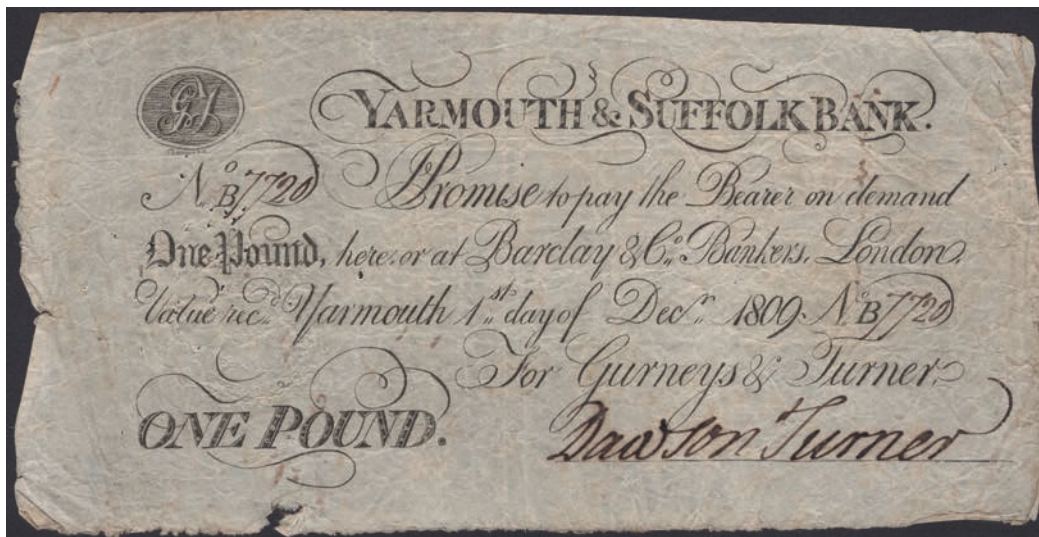 GT
YARMOUTH & SUFFOLK BANK.
No B7720 I Promise to pay the Bearer on demand
One Pound, here or at Barclay & Co. Bankers, London.
Value recd. Yarmouth 1st day of Decr. 1809. No B7720
For Gurneys & Turner.
ONE POUND. Dawson Turner